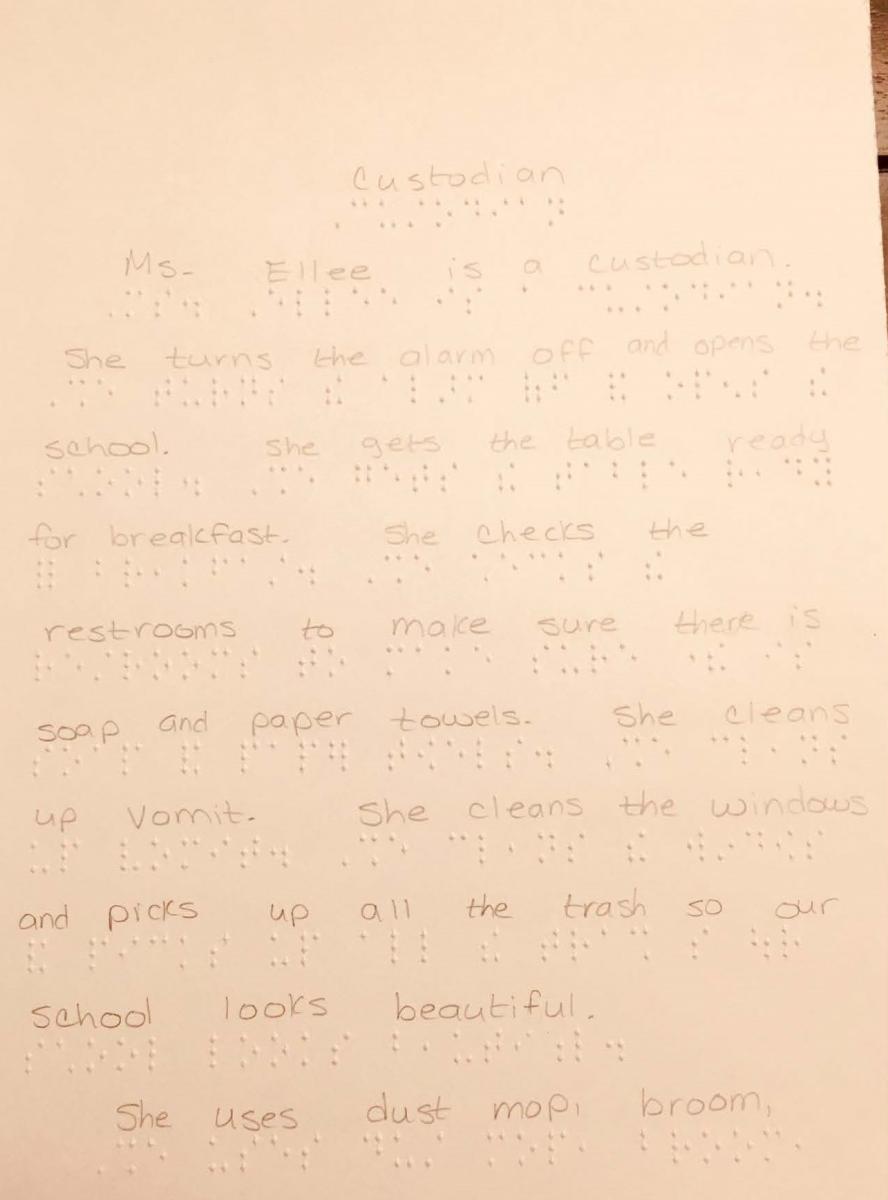 Custodian
Ms. Ellee is a custodian.
She turns the alarm off and opens the
school. She gets the table ready
for breakfast. She checks the
restrooms to make sure there is
soap and paper towels. She cleans
up vomit. She cleans the windows
and picks up all the trash so our
school looks beautiful.
She uses dust mop, broom,